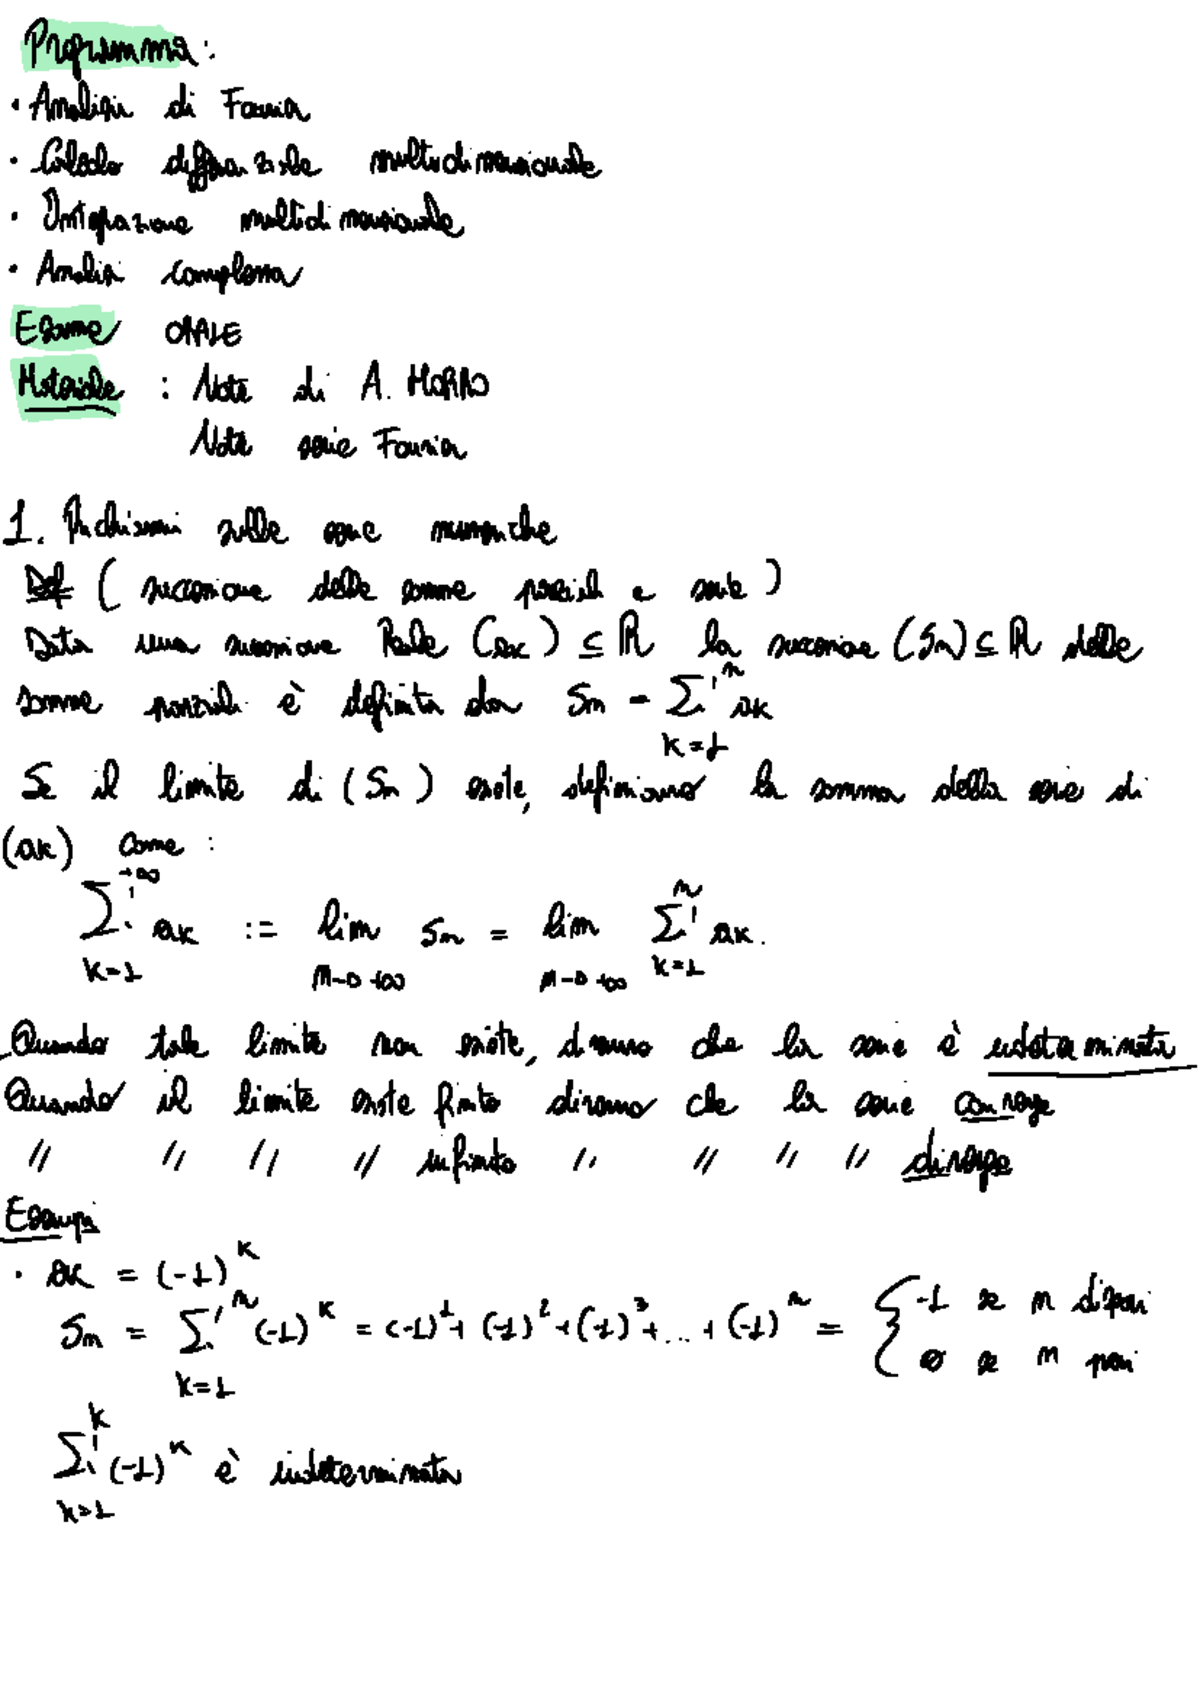 Programma:
· Analisi di Fourier
· Calcolo differenziale multidimensionale
· Integrazione multidimensionale
· Analisi complessa
Esame ORALE
Materiale : Note di A. MORRO
Note serie Fourier
1. Richiami sulle serie numeriche
Def ( successione delle somme parziali e serie )
Data una successione Reale (ak) ⊆ ℝ la successione (Sn) ⊆ ℝ delle
somme parziali è definita da Sn = ∑_{k=1}^{n} ak
Se il limite di (Sn) esiste, definiamo la somma della serie di
(ak) come :
∑_{k=1}^{+∞} ak := lim_{n→+∞} Sn = lim_{n→+∞} ∑_{k=1}^{n} ak.
Quando tale limite non esiste, diremo che la serie è indeterminata
Quando il limite esiste finito diremo che la serie converge
// // // // infinito // // // // diverge
Esempi
· ak = (-1)^k
Sn = ∑_{k=1}^{n} (-1)^k = (-1)^1 + (-1)^2 + (-1)^3 + ... + (-1)^n = { -1 se n dispari
0 se n pari
∑_{k=1}^{k} (-1)^k è indeterminata